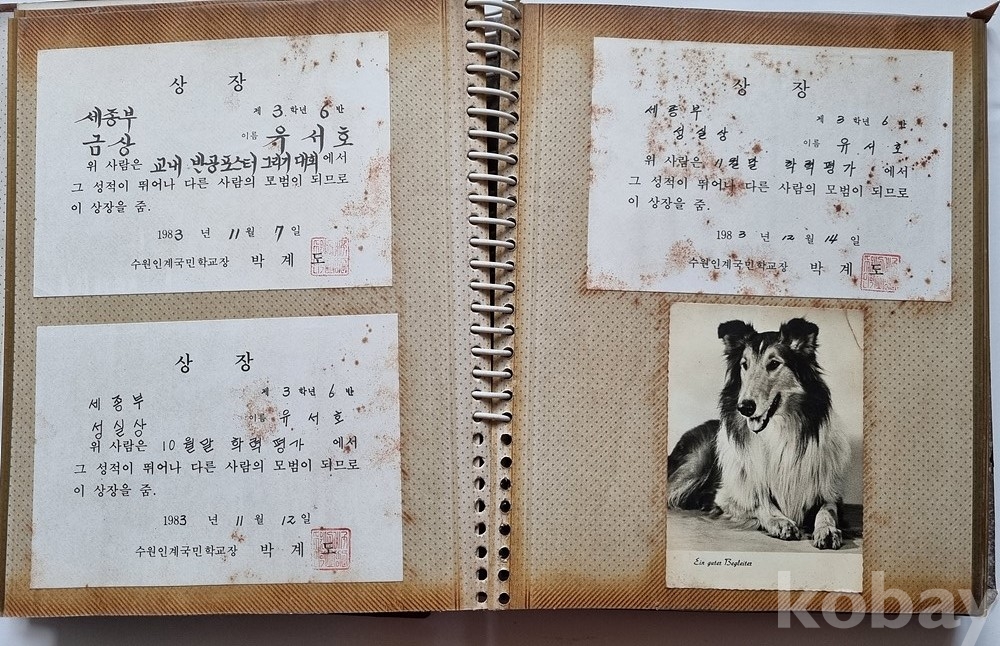 상 장
세종부 제 3 학년 6 반
금상 이름 유서호
위 사람은 교내 반공포스터 그리기 대회 에서
그 성적이 뛰어나 다른 사람의 모범이 되므로
이 상장을 줌.
1983 년 11 월 7 일
수원인계국민학교장 박 계 도
상 장
세종부 제 3 학년 6 반
성실상 이름 유서호
위 사람은 10월말 학력평가 에서
그 성적이 뛰어나 다른 사람의 모범이 되므로
이 상장을 줌.
1983 년 11 월 12 일
수원인계국민학교장 박 계 도
상 장
세종부 제 3 학년 6 반
성실상 이름 유서호
위 사람은 11월말 학력평가 에서
그 성적이 뛰어나 다른 사람의 모범이 되므로
이 상장을 줌.
1983 년 12 월 14 일
수원인계국민학교장 박 계 도
Ein guter Begleiter
kobay